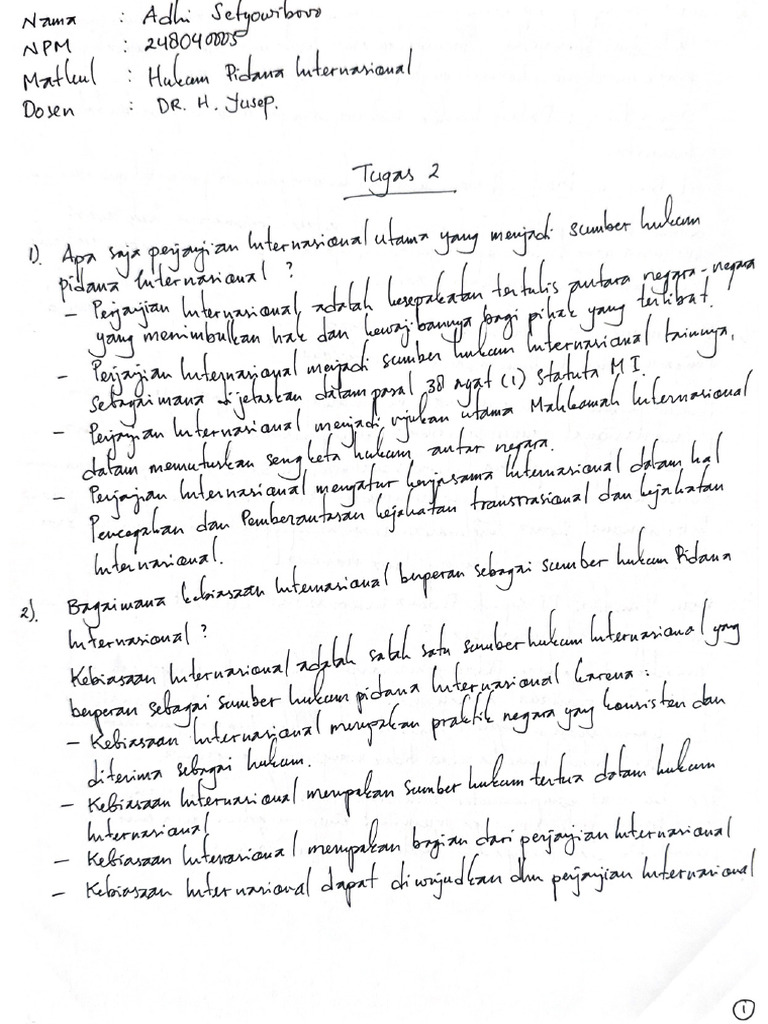 Nama : Adhi Setyowibowo
NPM : 248040005
Matkul : Hukum Pidana Internasional
Dosen : DR. H. Yusep.
Tugas 2
1). Apa saja perjanjian Internasional utama yang menjadi sumber hukum
pidana Internasional ?
- Perjanjian Internasional adalah kesepakatan tertulis antara negara-negara
yang menimbulkan hak dan kewajibannya bagi pihak yang terlibat.
- Perjanjian Internasional menjadi sumber hukum Internasional lainnya,
sebagaimana dijelaskan dalam pasal 38 ayat (1) statuta M I.
- Perjanjian Internasional menjadi rujukan utama Mahkamah Internasional
dalam memutuskan sengketa hukum antar negara.
- Perjanjian Internasional mengatur kerjasama Internasional dalam hal
Pencegahan dan Pemberantasan kejahatan transnasional dan kejahatan
Internasional.
2). Bagaimana kebiasaan Internasional berperan sebagai sumber hukum Pidana
Internasional ?
Kebiasaan Internasional adalah salah satu sumber hukum Internasional yang
berperan sebagai sumber hukum pidana Internasional karena :
- Kebiasaan Internasional merupakan praktik negara yang konsisten dan
diterima sebagai hukum.
- Kebiasaan Internasional merupakan sumber hukum tertua dalam hukum
Internasional
- Kebiasaan Internasional merupakan bagian dari perjanjian Internasional
- Kebiasaan Internasional dapat diwujudkan dlm perjanjian Internasional
1